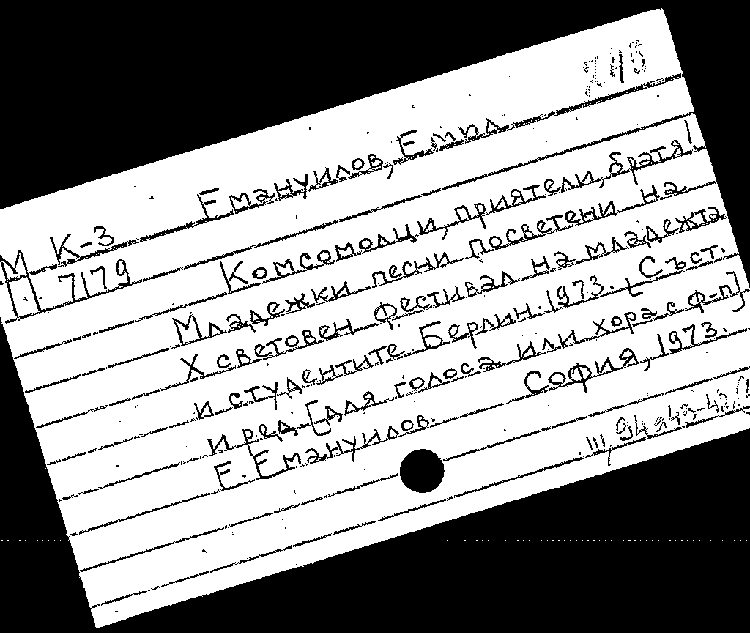 745
Емануилов, Емил
М К-3
П 7179
Комсомолци, приятели, братя!
Младежки песни посветени на
X световен фестивал на младежта
и студентите Берлин. 1973. [Съст.
и ред. [для голоса или хора с ф-п].
Е. Емануилов. София, 1973.